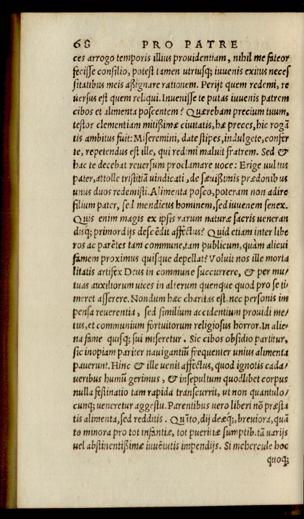 68 PRO PATRE
ces arrogo temporis illius prouidentiam, nihil me fateor
fecisse consilio, potest tamen utriusq; iuuenis exitus neces
sitatibus meis assignare rationem. Perijt quem redemi, re
uersus est quem reliqui. Inuenisse te putas iuuenis patrem
cibos et alimenta poscentem? Quærebam precium tuum,
testor clementiam mitissimæ ciuitatis, hæ preces, hic rogā
tis ambitus fuit: Miseremini, date stipes, indulgete, confer
te, repetendus est ille, qui redimi maluit fratrem. Sed &
hac te decebat reuersum proclamare uoce: Erige uultus
pater, attolle tristitiā uindicati, de sæuissimis prædonibus
unus duos redemisti. Alimenta posco, poteram non adire
filium pater, sed mendicus hominem, sed iuuenem senex.
Quis enim magis ex ipsis rerum naturæ sacris ueneran
disq; primordijs descēdit affectus? Quid etiam inter libe
ros ac parētes tam commune, tam publicum, quàm alicui
famem proximus quisque depellat? Voluit nos ille morta
litatis artifex Deus in commune succurrere, & per mu
tuas auxiliorum uices in alterum quenque quod pro se ti
meret asserere. Nondum hæc charitas est, nec personis im
pensa reuerentia, sed similium accidentium prouidi me
tus, et communium fortuitorum religiosus horror. In alie
na fame quisq; sui miseretur. Sic cibos obsidio partitur,
sic inopiam pariter nauigantiū frequenter unius alimenta
pauerunt. Hinc & ille uenit affectus, quod ignotis cada
ueribus humū gerimus, & insepultum quodlibet corpus
nulla festinatio tam rapida transcurrit, ut non quantulo
cunq; ueneretur aggestu. Parentibus uero liberi nō præsta
tis alimenta, sed redditis. Quāto, dij deæq;, breuiora, quā
to minora pro tot infantiæ, tot pueritiæ sumptib. tā uarijs
uel abstinentissimæ iuuētutis impendijs. Si mehercule hoc
quoq;